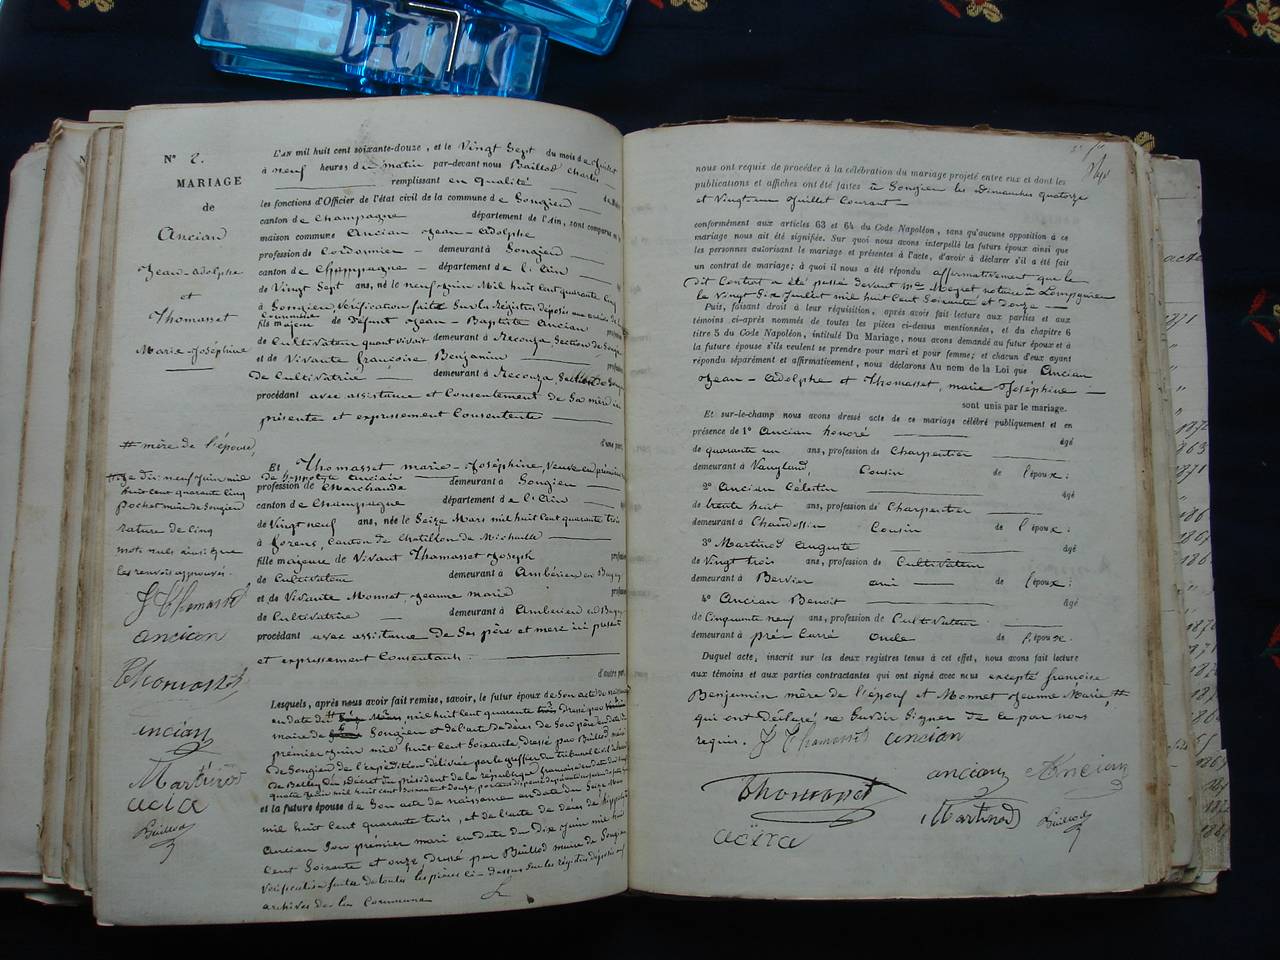 N° 2.
MARIAGE
de
Ancian
Jean-Adolphe
et
Thomasset
Marie-Joséphine
L'AN mil huit cent soixante-douze, et le Vingt Sept du mois de Juillet
à neuf heures du matin par-devant nous Baillod Charles
remplissant en qualité
les fonctions d'Officier de l'état civil de la commune de Songieu
canton de Champagne département de l'Ain, sont comparus en la
maison commune Ancian Jean-Adolphe
profession de Cordonnier demeurant à Songieu
canton de Champagne département de l'Ain
de Vingt Sept ans, né le neuf Juin Mil huit Cent quarante Cinq
à Songieu, Vérification faite Sur les Registres déposés aux archives de la
Commune
fils majeur de défunt Jean-Baptiste Ancian
de Cultivateur quant vivait demeurant à Recouza Section de Songieu
et de Vivante françoise Benjamin
de Cultivatrice demeurant à Recouza, Section de Songieu
procédant avec assistance et Consentement de Sa mère ici
présente et expressement Consentente
d'une part.
Et Thomasset marie-Joséphine, Veuve en première
de hippolyte anciain
profession de Marchande demeurant à Songieu
canton de Champagne département de l'Ain
de Vingt neuf ans, née le Seize Mars mil huit Cent quarante trois
à forens, Canton de Chatillon de Michaille
fille majeure de Vivant Thomasset Joseph
de Cultivateur demeurant à Ambérieu en Bugey
et de Vivante Monnet, Jeanne marie
de Cultivatrice demeurant à Ambérieu en Bugey
procédant avec assistance de Ses père et mere ici present
et expressement Consentants.
d'autre part.
# mère de l'épouse,
# Le dix neuf Juin mil
huit Cent quarante Cinq
Pochet maire de Songieu
rature de Cinq
mots nuls ainsi que
les renvois approuvés.
J Thomasset
ancian
Thomasset
ancian
Martinod
acia
Baillod
Lesquels, après nous avoir fait remise, savoir, le futur époux de Son acte de naissance
en date du # mil huit Cent quarante dressé par
maire de Songieu et de l'acte de décès de Son père en date du
premier Juin mil huit Cent Soixante, dressé par Baillod, maire
de Songieu, de l'expédition délivrée par le greffier du tribunal Civil
de Belley du décret du président de la république française en date du
quatre Juin mil huit Cent Soixante et douze,
et la future épouse de Son acte de naissance en date du Seize Mars
mil huit Cent quarante trois, et de l'acte de décès de hippolyte
Ancian Son premier mari en date du Dix Juin mil huit
Cent Soixante et onze, dressé par Baillod maire de Songieu
Vérification faite de toutes les pièces ci-dessus Sur les Régistres déposés aux
archives de la Commune
nous ont requis de procéder à la célébration du mariage projeté entre eux et dont les
publications et affiches ont été faites à Songieu les dimanches quatorze
et Vingt un Juillet Courant
conformément aux articles 63 et 64 du Code Napoléon, sans qu'aucune opposition à ce
mariage nous ait été signifiée. Sur quoi nous avons interpellé les futurs époux ainsi que
les personnes autorisant le mariage et présentes à l'acte, d'avoir à déclarer s'il a été fait
un contrat de mariage; à quoi il nous a été répondu affirmativement que le
dit Contrat a été passé devant Me notaire à Lompnieu
le Vingt Six Juillet mil huit Cent Soixante et douze
Puis, faisant droit à leur réquisition, après avoir fait lecture aux parties et aux
témoins ci-après nommés de toutes les pièces ci-dessus mentionnées, et du chapitre 6
titre 5 du Code Napoléon, intitulé Du Mariage, nous avons demandé au futur époux et à
la future épouse s'ils veulent se prendre pour mari et pour femme; et chacun d'eux ayant
répondu séparément et affirmativement, nous déclarons Au nom de la Loi que Ancian
Jean-Adolphe et Thomasset, marie Joséphine
sont unis par le mariage.
Et sur-le-champ nous avons dressé acte de ce mariage célébré publiquement et en
présence de 1° Ancian honoré âgé
de quarante un ans, profession de Charpentier
demeurant à Vaugland, Cousin de l'époux:
2° Ancian Célestin âgé
de trente huit ans, profession de Charpentier
demeurant à Chaudossin Cousin de l'époux:
3° Martinod auguste âgé
de Vingt trois ans, profession de Cultivateur
demeurant à Bervier ami de l'époux:
4° Ancian Benoit âgé
de Cinquante neuf ans, profession de Cultivateur
demeurant à pré Carré oncle de l'époux.
Duquel acte, inscrit sur les deux registres tenus à cet effet, nous avons fait lecture
aux témoins et aux parties contractantes qui ont signé avec nous excepté françoise
Benjamin mère de l'époux et Monnet Jeanne Marie, #
qui ont déclaré ne Savoir Signer de ce par nous
requis. J Thomasset ancian
Thomasset ancian Ancian
Martinod Baillod
acira